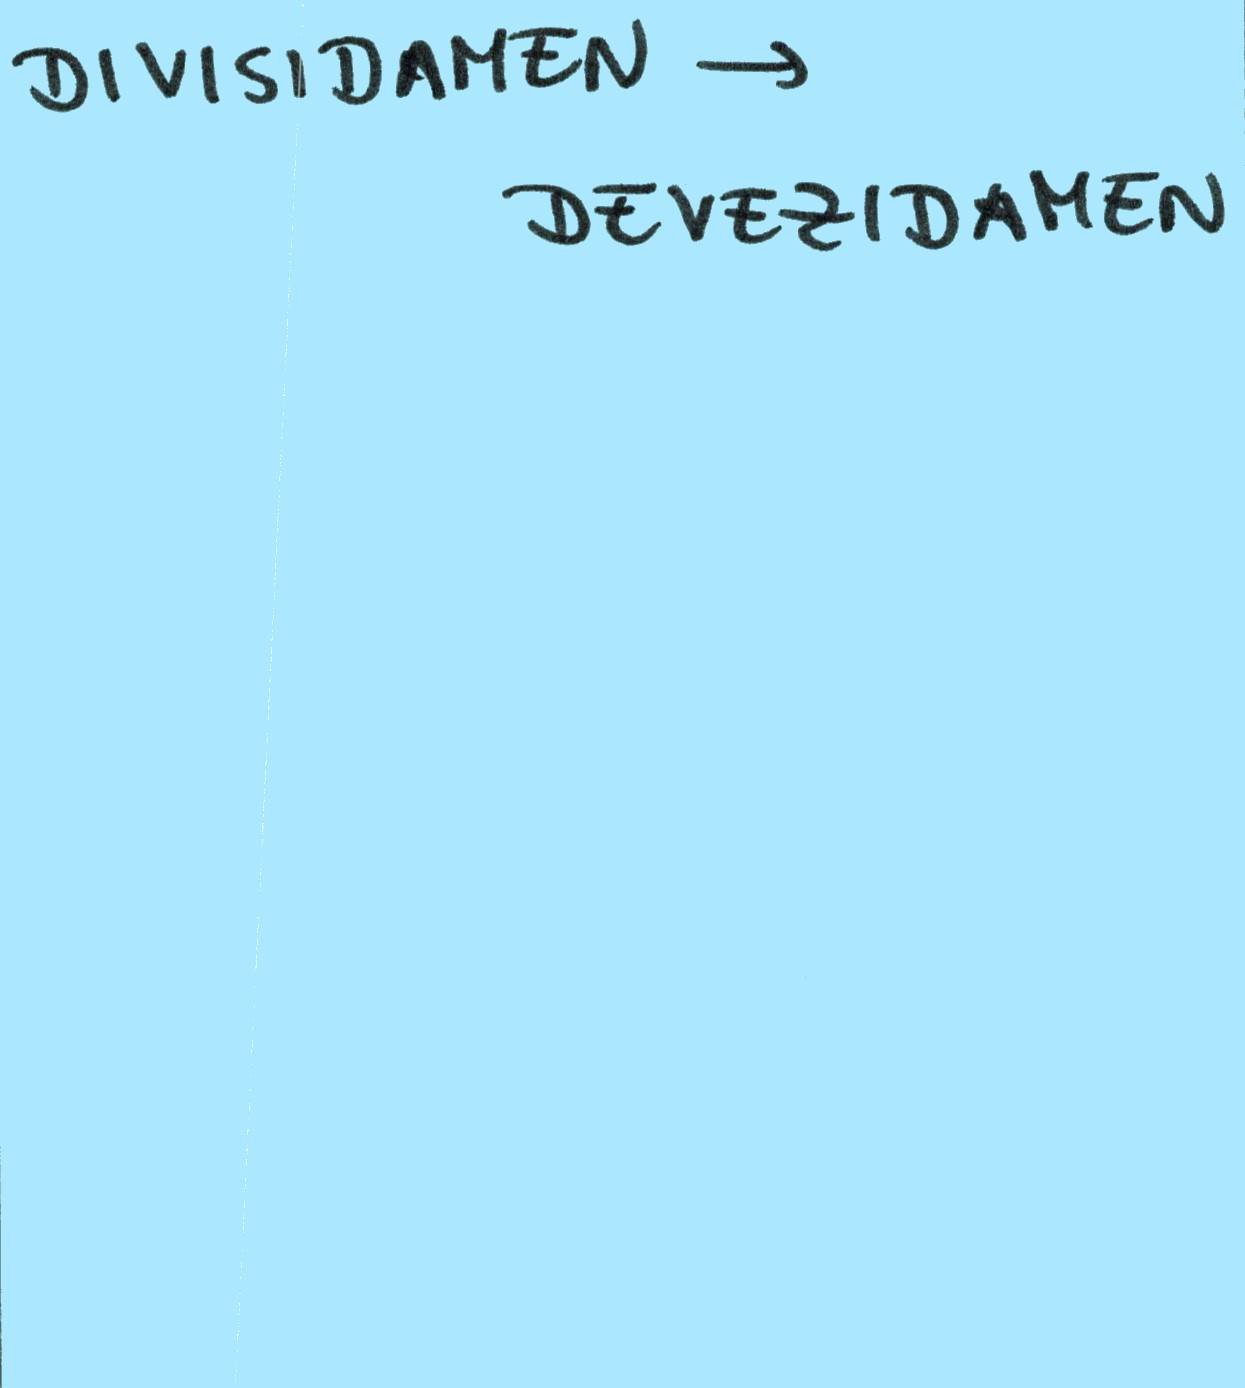 DIVISIDAMEN →
DEVEZIDAMEN